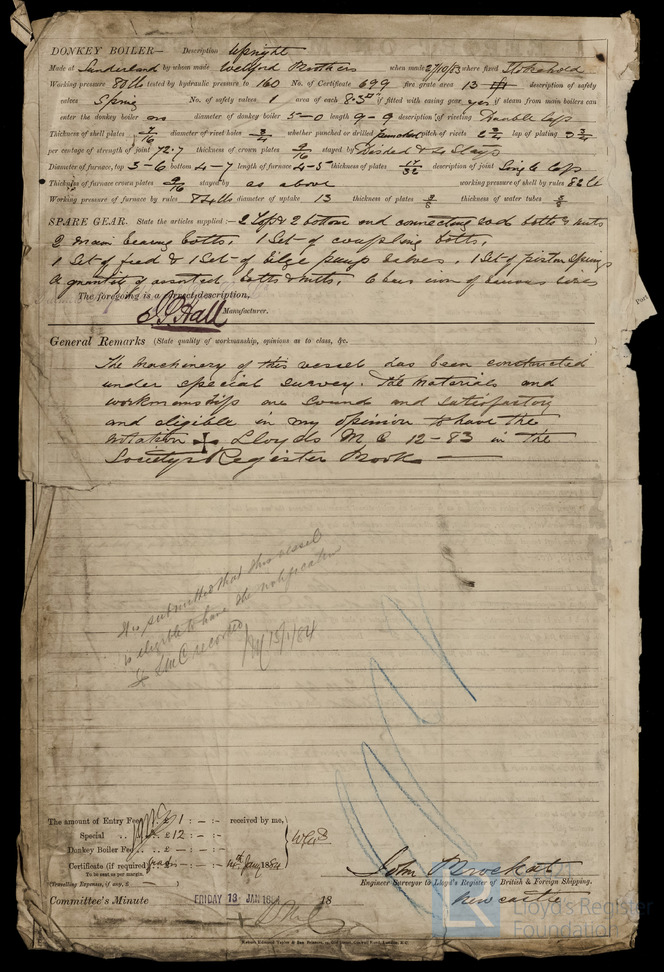 DONKEY BOILER— Description Upright
Made at Sunderland by whom made Welford Brothers when made 27/10/83 where fixed Stokehold
Working pressure 80 lb tested by hydraulic pressure to 160 No. of Certificate 699 fire grate area 13 description of safety
valves Spring No. of safety valves 1 area of each 8.3 if fitted with easing gear yes if steam from main boilers can
enter the donkey boiler no diameter of donkey boiler 5-0 length 9-9 description of riveting Double laps
Thickness of shell plates 7/16 diameter of rivet holes 3/4 whether punched or drilled punched pitch of rivets 2 3/4 lap of plating 3 3/4
per centage of strength of joint 72.7 thickness of crown plates 9/16 stayed by Dished & Stays
Diameter of furnace, top 3-6 bottom 4-7 length of furnace 4-5 thickness of plates 17/32 description of joint Single laps
Thickness of furnace crown plates 9/16 stayed by as above working pressure of shell by rules 82 lb
Working pressure of furnace by rules diameter of uptake 13 thickness of plates 3/8 thickness of water tubes 3/8
SPARE GEAR. State the articles supplied:— 2 Top & 2 bottom end connecting rod bolts & nuts
2 main bearing bolts, 1 Set of coupling bolts,
1 Set of feed & 1 Set of bilge pump valves, 1 Set of piston springs
A quantity of assorted bolts & nuts, & bars iron of various sizes
The foregoing is a correct description,
Hall Manufacturer.
General Remarks (State quality of workmanship, opinions as to class, &c.
The machinery of this vessel has been constructed
under special survey. The materials and
workmanship are sound and satisfactory
and eligible in my opinion to have the
notation ✠ Lloyds M C 12-83 in the
Societys Register Book
It is submitted that this vessel
is eligible to have the notification
LMC recorded
15/1/84
The amount of Entry Fee .. £ 1 : - : - received by me,
Special .. £ 12 : - : -
Donkey Boiler Fee .. £ — : - : -
Certificate (if required) gratis : - : - Jany 1884
To be sent as per margin.
(Travelling Expenses, if any, £ — )
John Brockat
Engineer Surveyor to Lloyd's Register of British & Foreign Shipping.
Newcastle
Committee's Minute FRIDAY 18 JAN 1884 18
Port
Lloyd's Register
Foundation